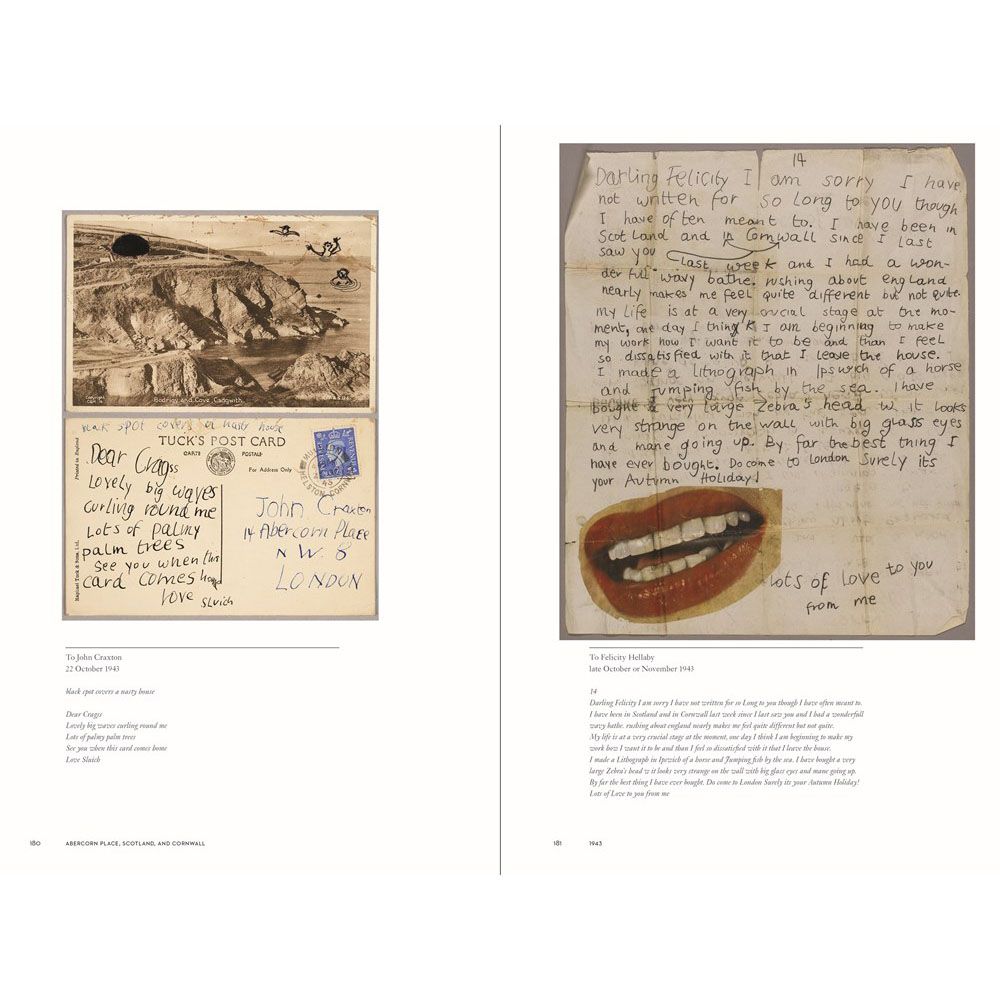 Bodrigy and Cove, Cadgwith
black spot covers a nasty house
TUCK'S POST CARD
CARTE POSTALE
For Address Only
Printed in England
Raphael Tuck & Sons, Ltd.
Dear Cragss
Lovely big waves
curling round me
Lots of palmy
palm trees
See you when this
card comes home
Love Sluich
HELSTON CORNWALL
John Craxton
14 Abercorn Place
N W. 8
LONDON
To John Craxton
22 October 1943
black spot covers a nasty house
Dear Cragss
Lovely big waves curling round me
Lots of palmy palm trees
See you when this card comes home
Love Sluich
180 ABERCORN PLACE, SCOTLAND, AND CORNWALL
14
Darling Felicity I am sorry I have
not written for so long to you though
I have often meant to. I have been in
ScotLand and in Cornwall since I last
saw you last week and I had a won-
derfull wavy bathe. rushing about england
nearly makes me feel quite different but not quite.
my life is at a very crucial stage at the mo-
ment, one day I think I am beginning to make
my work how I want it to be and than I feel
so dissatisfied with it that I leave the house.
I made a Lithograph in Ipswich of a horse
and Jumping fish by the sea. I have
bought a very large Zebra's head w it looks
very strange on the wall with big glass eyes
and mane going up. By far the best thing I
have ever bought. Do come to London Surely its
your Autumn Holiday!
Lots of Love to you
from me
To Felicity Hellaby
late October or November 1943
14
Darling Felicity I am sorry I have not written for so Long to you though I have often meant to.
I have been in Scotland and in Cornwall last week since I last saw you and I had a wonderfull
wavy bathe. rushing about england nearly makes me feel quite different but not quite.
My life is at a very crucial stage at the moment, one day I think I am beginning to make my
work how I want it to be and than I feel so dissatisfied with it that I leave the house.
I made a Lithograph in Ipswich of a horse and Jumping fish by the sea. I have bought a very
large Zebra's head w it looks very strange on the wall with big glass eyes and mane going up.
By far the best thing I have ever bought. Do come to London Surely its your Autumn Holiday!
Lots of Love to you from me
181 1943